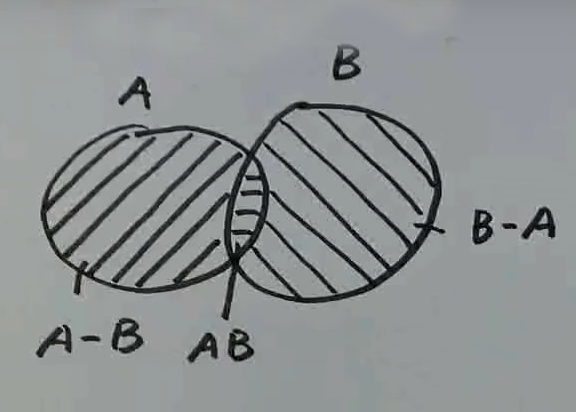 A
B
B-A
A-B
AB